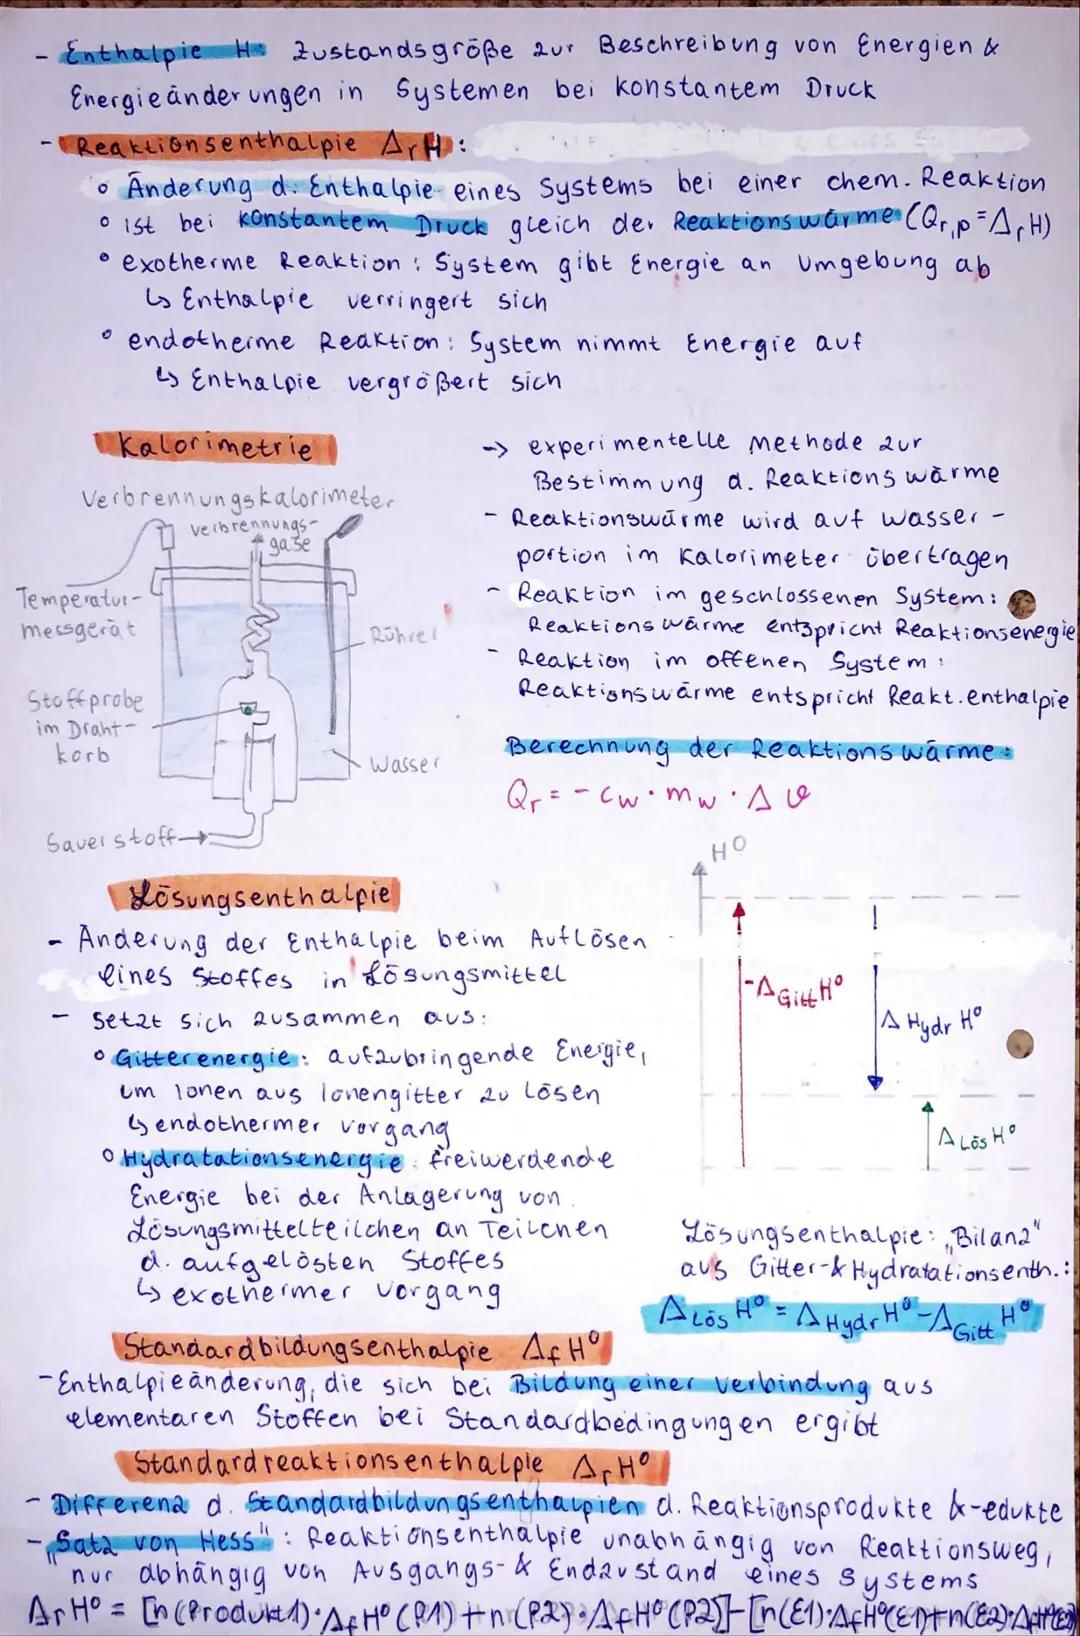 - Enthalpie H: Zustandsgröße zur Beschreibung von Energien &
Energieänderungen in Systemen bei konstantem Druck
- Reaktionsenthalpie ΔrH:
° Änderung d. Enthalpie eines Systems bei einer chem. Reaktion
° ist bei konstantem Druck gleich der Reaktionswärme (Qr,p = ΔrH)
° exotherme Reaktion: System gibt Energie an Umgebung ab
↳ Enthalpie verringert sich
° endotherme Reaktion: System nimmt Energie auf
↳ Enthalpie vergrößert sich
Kalorimetrie
Verbrennungskalorimeter
verbrennungs-
gase
Temperatur-
messgerät
Rührer
Stoffprobe
im Draht-
korb
Wasser
Sauerstoff→
-> experimentelle Methode zur
Bestimmung d. Reaktionswärme
- Reaktionswärme wird auf Wasser-
portion im Kalorimeter übertragen
- Reaktion im geschlossenen System:
Reaktionswärme entspricht Reaktionsenergie
- Reaktion im offenen System:
Reaktionswärme entspricht Reakt.enthalpie
Berechnung der Reaktionswärme:
Qr = - cw · mw · Δϑ
Lösungsenthalpie
- Änderung der Enthalpie beim Auflösen
eines Stoffes in Lösungsmittel
- setzt sich zusammen aus:
° Gitterenergie: aufzubringende Energie,
um Ionen aus Ionengitter zu lösen
↳ endothermer Vorgang
° Hydratationsenergie: freiwerdende
Energie bei der Anlagerung von
Lösungsmittelteilchen an Teilchen
d. aufgelösten Stoffes
↳ exothermer Vorgang
H⁰
-ΔGitt H⁰
ΔHydr H⁰
ΔLös H⁰
Lösungsenthalpie: „Bilanz"
aus Gitter- & Hydratationsenth.:
ΔLös H⁰ = ΔHydr H⁰ - ΔGitt H⁰
Standardbildungsenthalpie ΔfH⁰
- Enthalpieänderung, die sich bei Bildung einer Verbindung aus
elementaren Stoffen bei Standardbedingungen ergibt
Standardreaktionsenthalpie ΔrH⁰
- Differenz d. Standardbildungsenthalpien d. Reaktionsprodukte & -edukte
- „Satz von Hess": Reaktionsenthalpie unabhängig von Reaktionsweg,
nur abhängig von Ausgangs- & Endzustand eines Systems
ΔrH⁰ = [n(Produkt1)·ΔfH⁰(P1)+n(P2)·ΔfH⁰(P2)]-[n(E1)·ΔfH⁰(E1)+n(E2)·ΔfH⁰(E2)